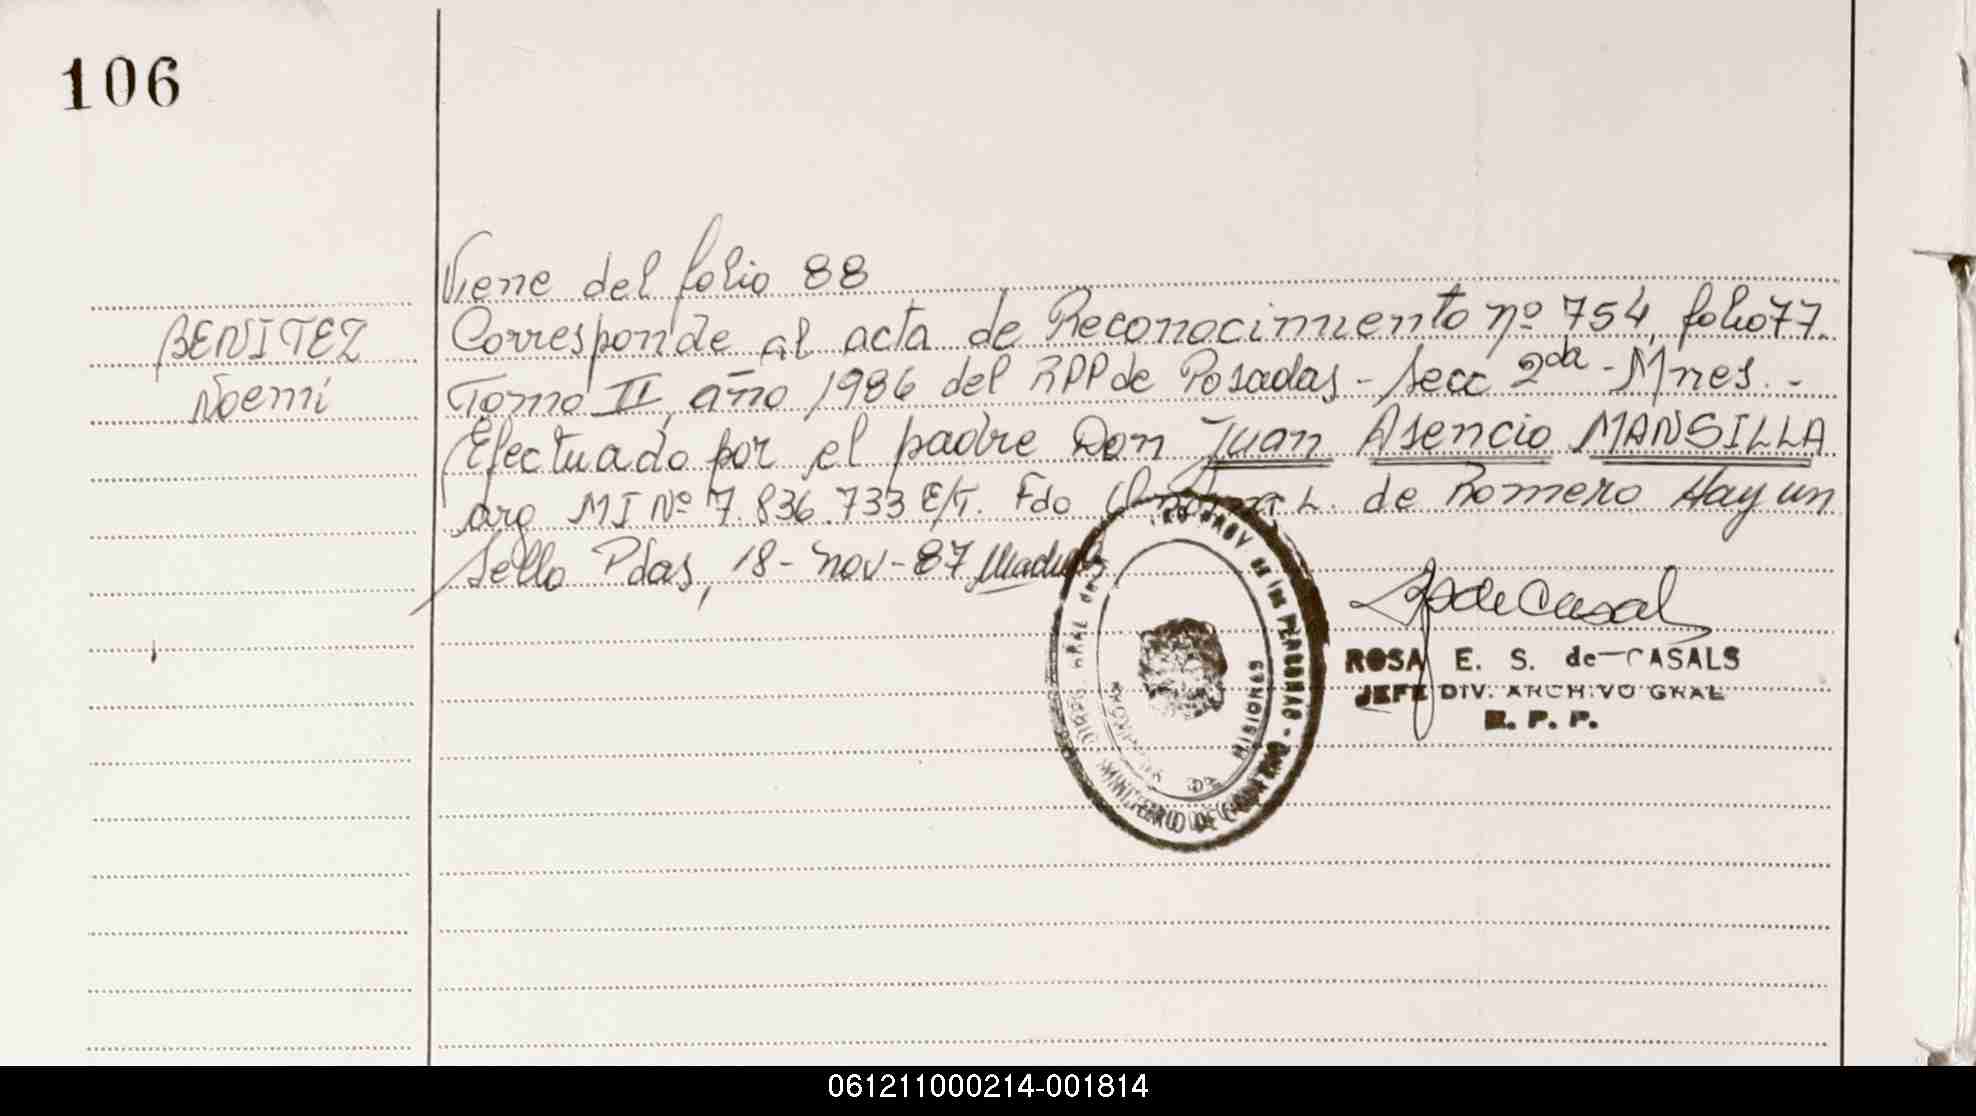 106
Viene del folio 88
BENITEZ
Noemí
Corresponde al acta de Reconocimiento nº 754, folio 77.
Tomo II, año 1986 del RPP de Posadas - Secc 2da - Mnes. -
Efectuado por el padre Don Juan Asencio MANSILLA
arg MI Nº 7.836.733 E/T. Fdo L. de Romero Hay un
Sello Pdas, 18 - nov - 87
PROV DE LAS PERSONAS
MINISTERIO DE
DE MISIONES
ROSA E. S. de CASALS
JEFE DIV. ARCHIVO GRAL
R. P. P.
061211000214-001814